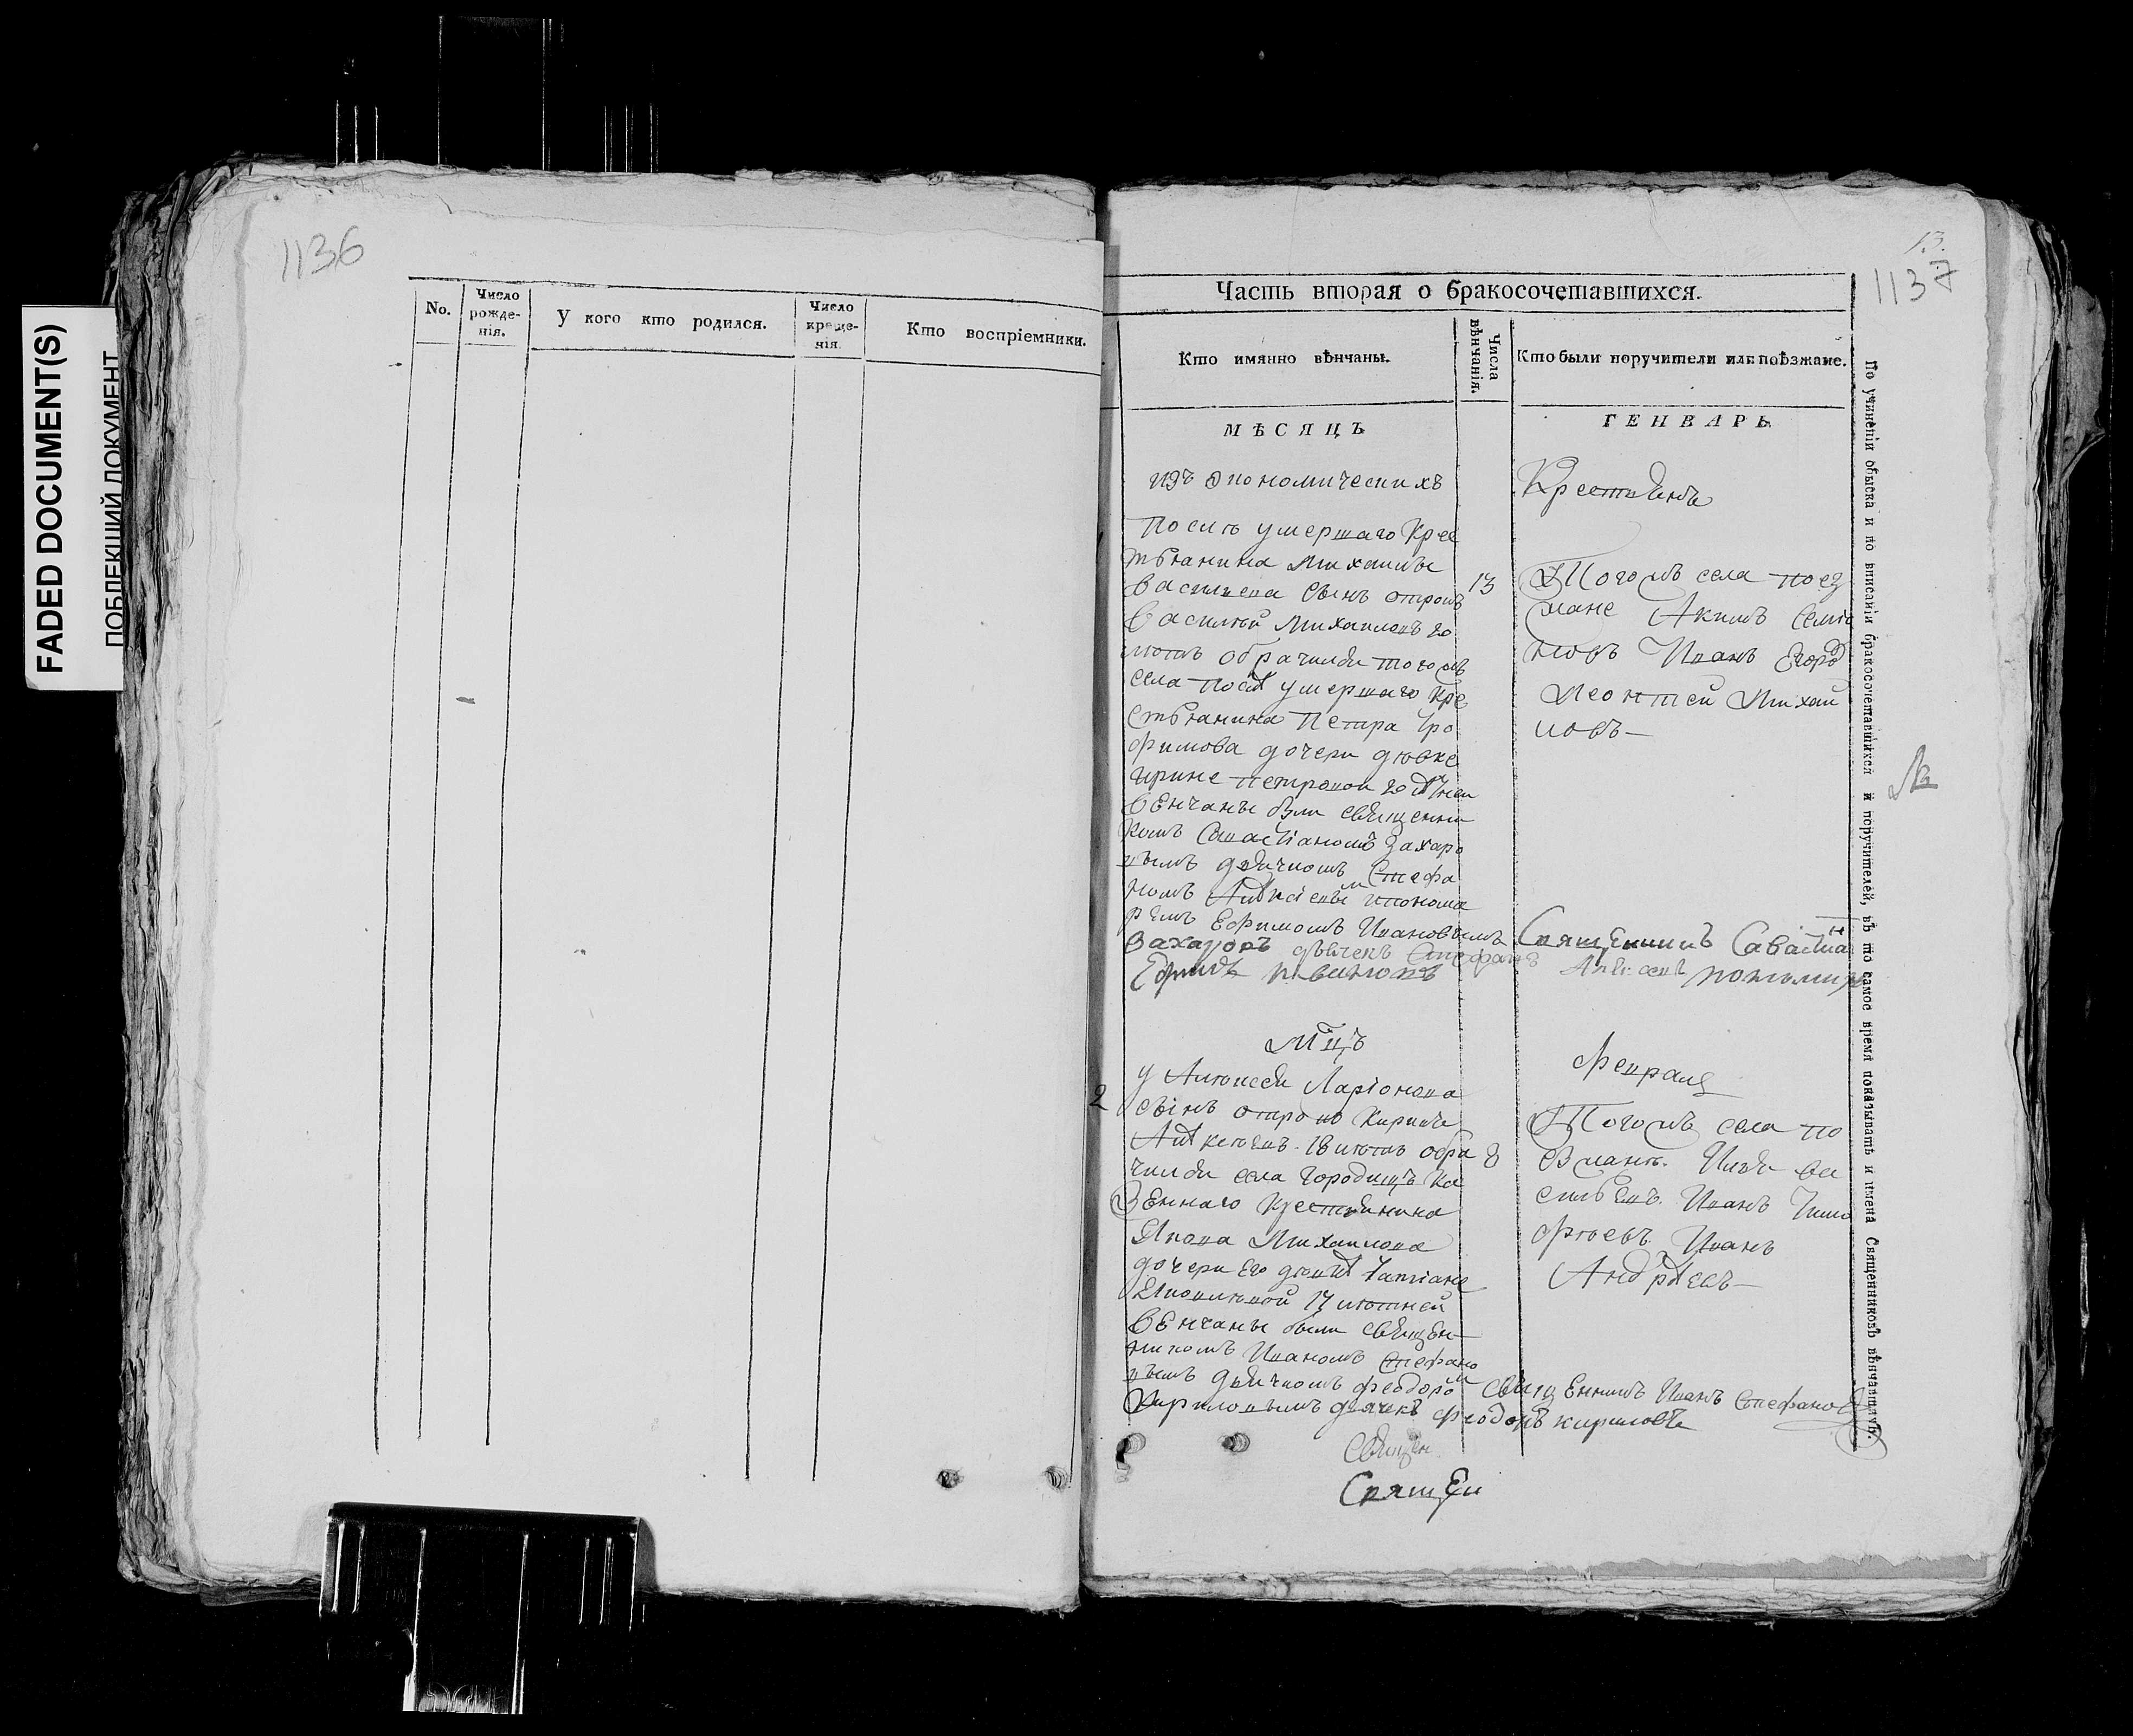 FADED DOCUMENT(S)
ПОБЛЕКШИЙ ДОКУМЕНТ
1136
No.
Число рожде-нія.
У кого кто родился.
Число креще-нія.
Кто воспріемники.
13.
1137
Часть вторая о бракосочетавшихся.
Кто имянно вѣнчаны.
Числа вѣнчанія.
Кто были поручители или поѣзжане.
МѢСЯЦЪ
ГЕНВАРЬ
изъ экономическихъ
Крестьянъ
После умершаго Крес
тьянина Михаила
Василева сынъ отрокъ
Василей Михаиловъ 20
лѣтъ обрачился тогожъ
села после умершаго Кре
стьянина Петра Тро
фимова дочери дѣвке
Ирине Петровой 20
венчаны были священни
комъ Савастіаномъ Захаро
вымъ дьячкомъ Стефа
номъ Алексіевы понома
ремъ Ефимомъ Ивановымъ
13
Тогожъ села поез
жане Акимъ Семіо
новъ Иванъ Егоро
Леонтей Михаи
ловъ
Священникъ Савастиа
Захаровъ дьячекъ Стефанъ Алексеевъ пономарь
Ефимъ Ивановъ
Мцъ
Февраль
2
у Алексея Ларіонова
сынъ отрокъ Кирила
Алексеевъ 18 лѣтъ обра
чился села Городищъ Ка
зеннаго Крестьянина
Якова Михаилова
дочери его девке Татіане
Яковлевой 17 летней
венчаны были священ
никомъ Иваномъ Стефано
вымъ дьячкомъ Феодоро
Кириловымъ дьячекъ Феодоръ Кириловъ
8
Тогожъ села по
езжане Илья Ва
сильевъ Иванъ Тимо
фѣевъ Иванъ
Андреевъ
священникъ Иванъ Стефановъ
Священ
Священ
По учиненіи обыска и по вписаніи бракосочетавшихся и поручителей, въ то самое время показывать и имена Священниковъ вѣнчавшихъ.